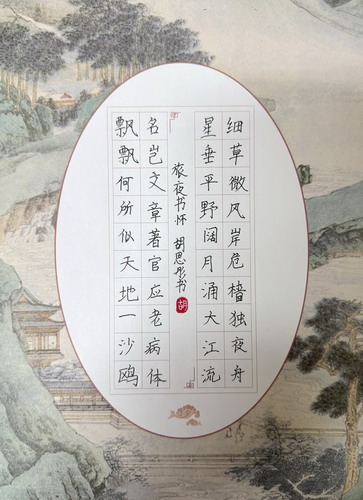 细草微风岸危樯独夜舟
星垂平野阔月涌大江流
旅夜书怀 胡思彤书
胡
名岂文章著官应老病体
飘飘何所似天地一沙鸥